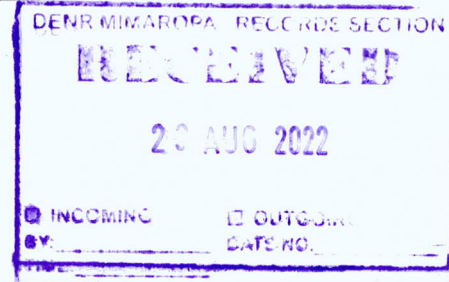 DENR MIMAROPA RECORDS SECTION
RECEIVED
AUG 2022
INCOMING OUTGOING
BY: DATS NO.